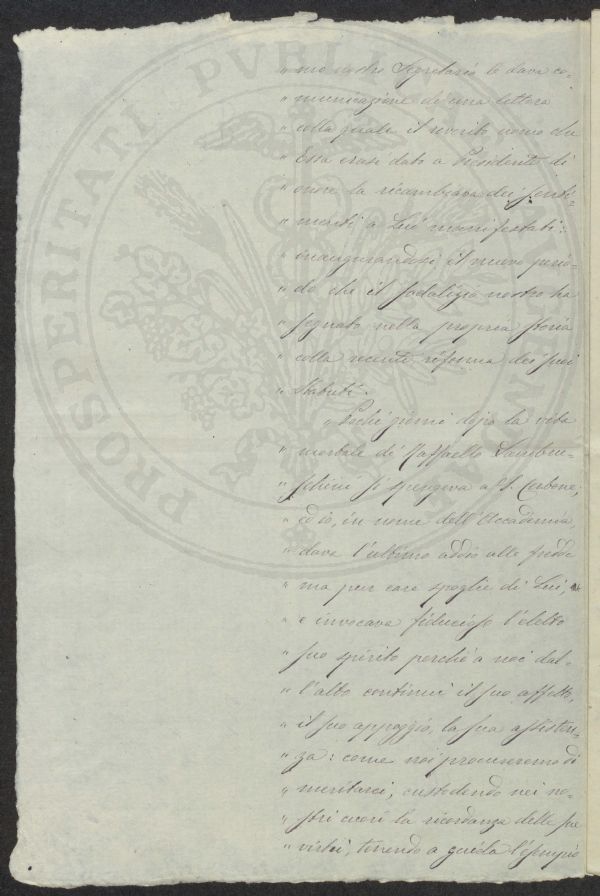 PROSPERITATI PVBLICAE
" mo nostro Segretario le dava co-
" municazione di una lettera
" colla quale il riverito uomo che
" Essa erasi dato a Presidente di
" onore la ricambiava dei senti-
" menti a Lui manifestati:
" inaugurandosi il nuovo perio-
" do che il sodalizio nostro ha
" segnato nella propria storia
" colla recente riforma dei suoi
" Statuti.
" Pochi giorni dopo la vita
" mortale di Raffaello Lambru-
" schini si spengeva a S. Cerbone;
" ed io, in nome dell'Accademia,
" dava l'ultimo addio alle fredde
" ma pur care spoglie di Lui,
" e invocava fiducioso l'eletto
" suo spirito perchè a noi dal-
" l'alto continui il suo affetto,
" il suo appoggio, la sua assisten-
" za: come noi procureremo di
" meritarci, custodendo nei no-
" stri cuori la ricordanza delle sue
" virtù, tenendo a guida l'esempio